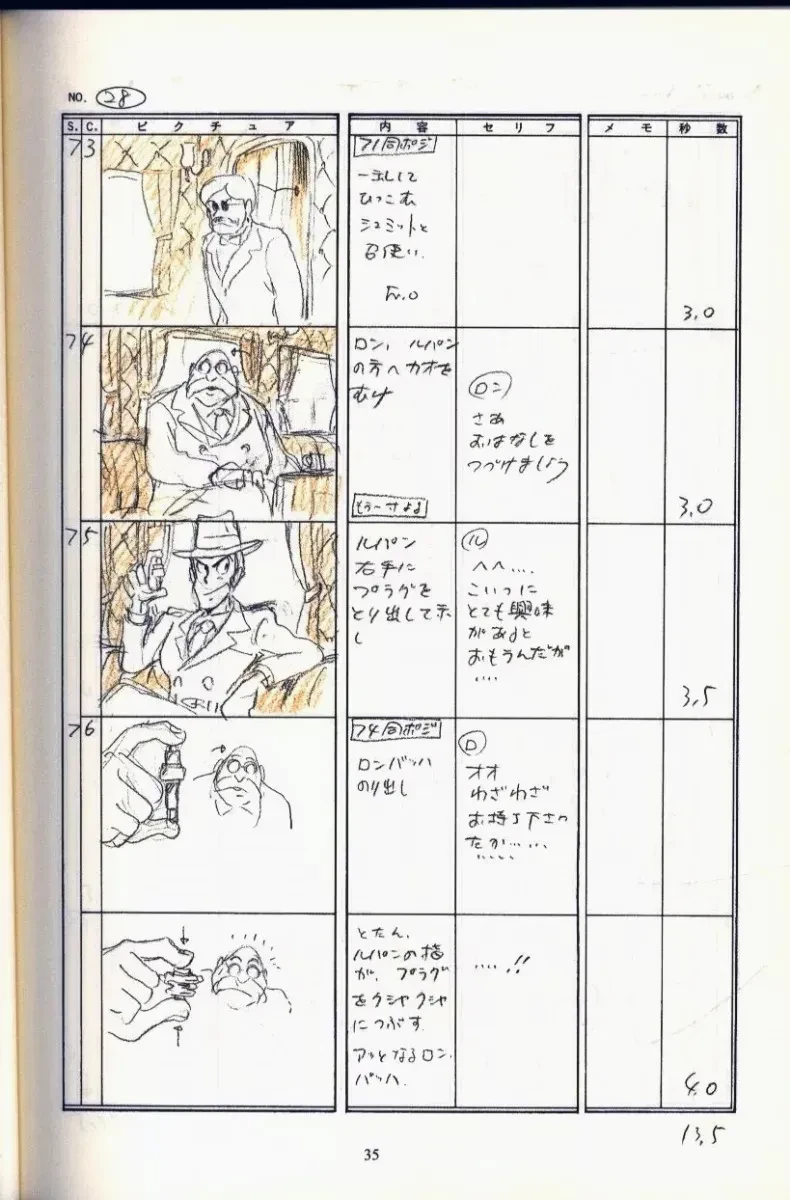 NO. 28
S. C. ピクチュア 内容 セリフ メモ 秒数
73
71同ポジ
一礼して
ひっこむ
シュミットと
召使い.
F.O
3.0
74
ロン, ルパン
の方へカオを
むけ
もう一寸よる
ロン
さあ
おはなしを
つづけましょう
3.0
75
ルパン
右手に
プラグを
とり出して示
し
ル
ヘヘ....
こいつに
とても興味
があると
おもうんだが
....
3.5
76
74同ポジ
ロンバッハ
のり出し
ロ
オオ
わざわざ
お持ち下さっ
たか......
とたん,
ルパンの指
が, プラグ
をクシャクシャ
につぶす
アッとなるロン,
バッハ.
....!!
4.0
13.5
35